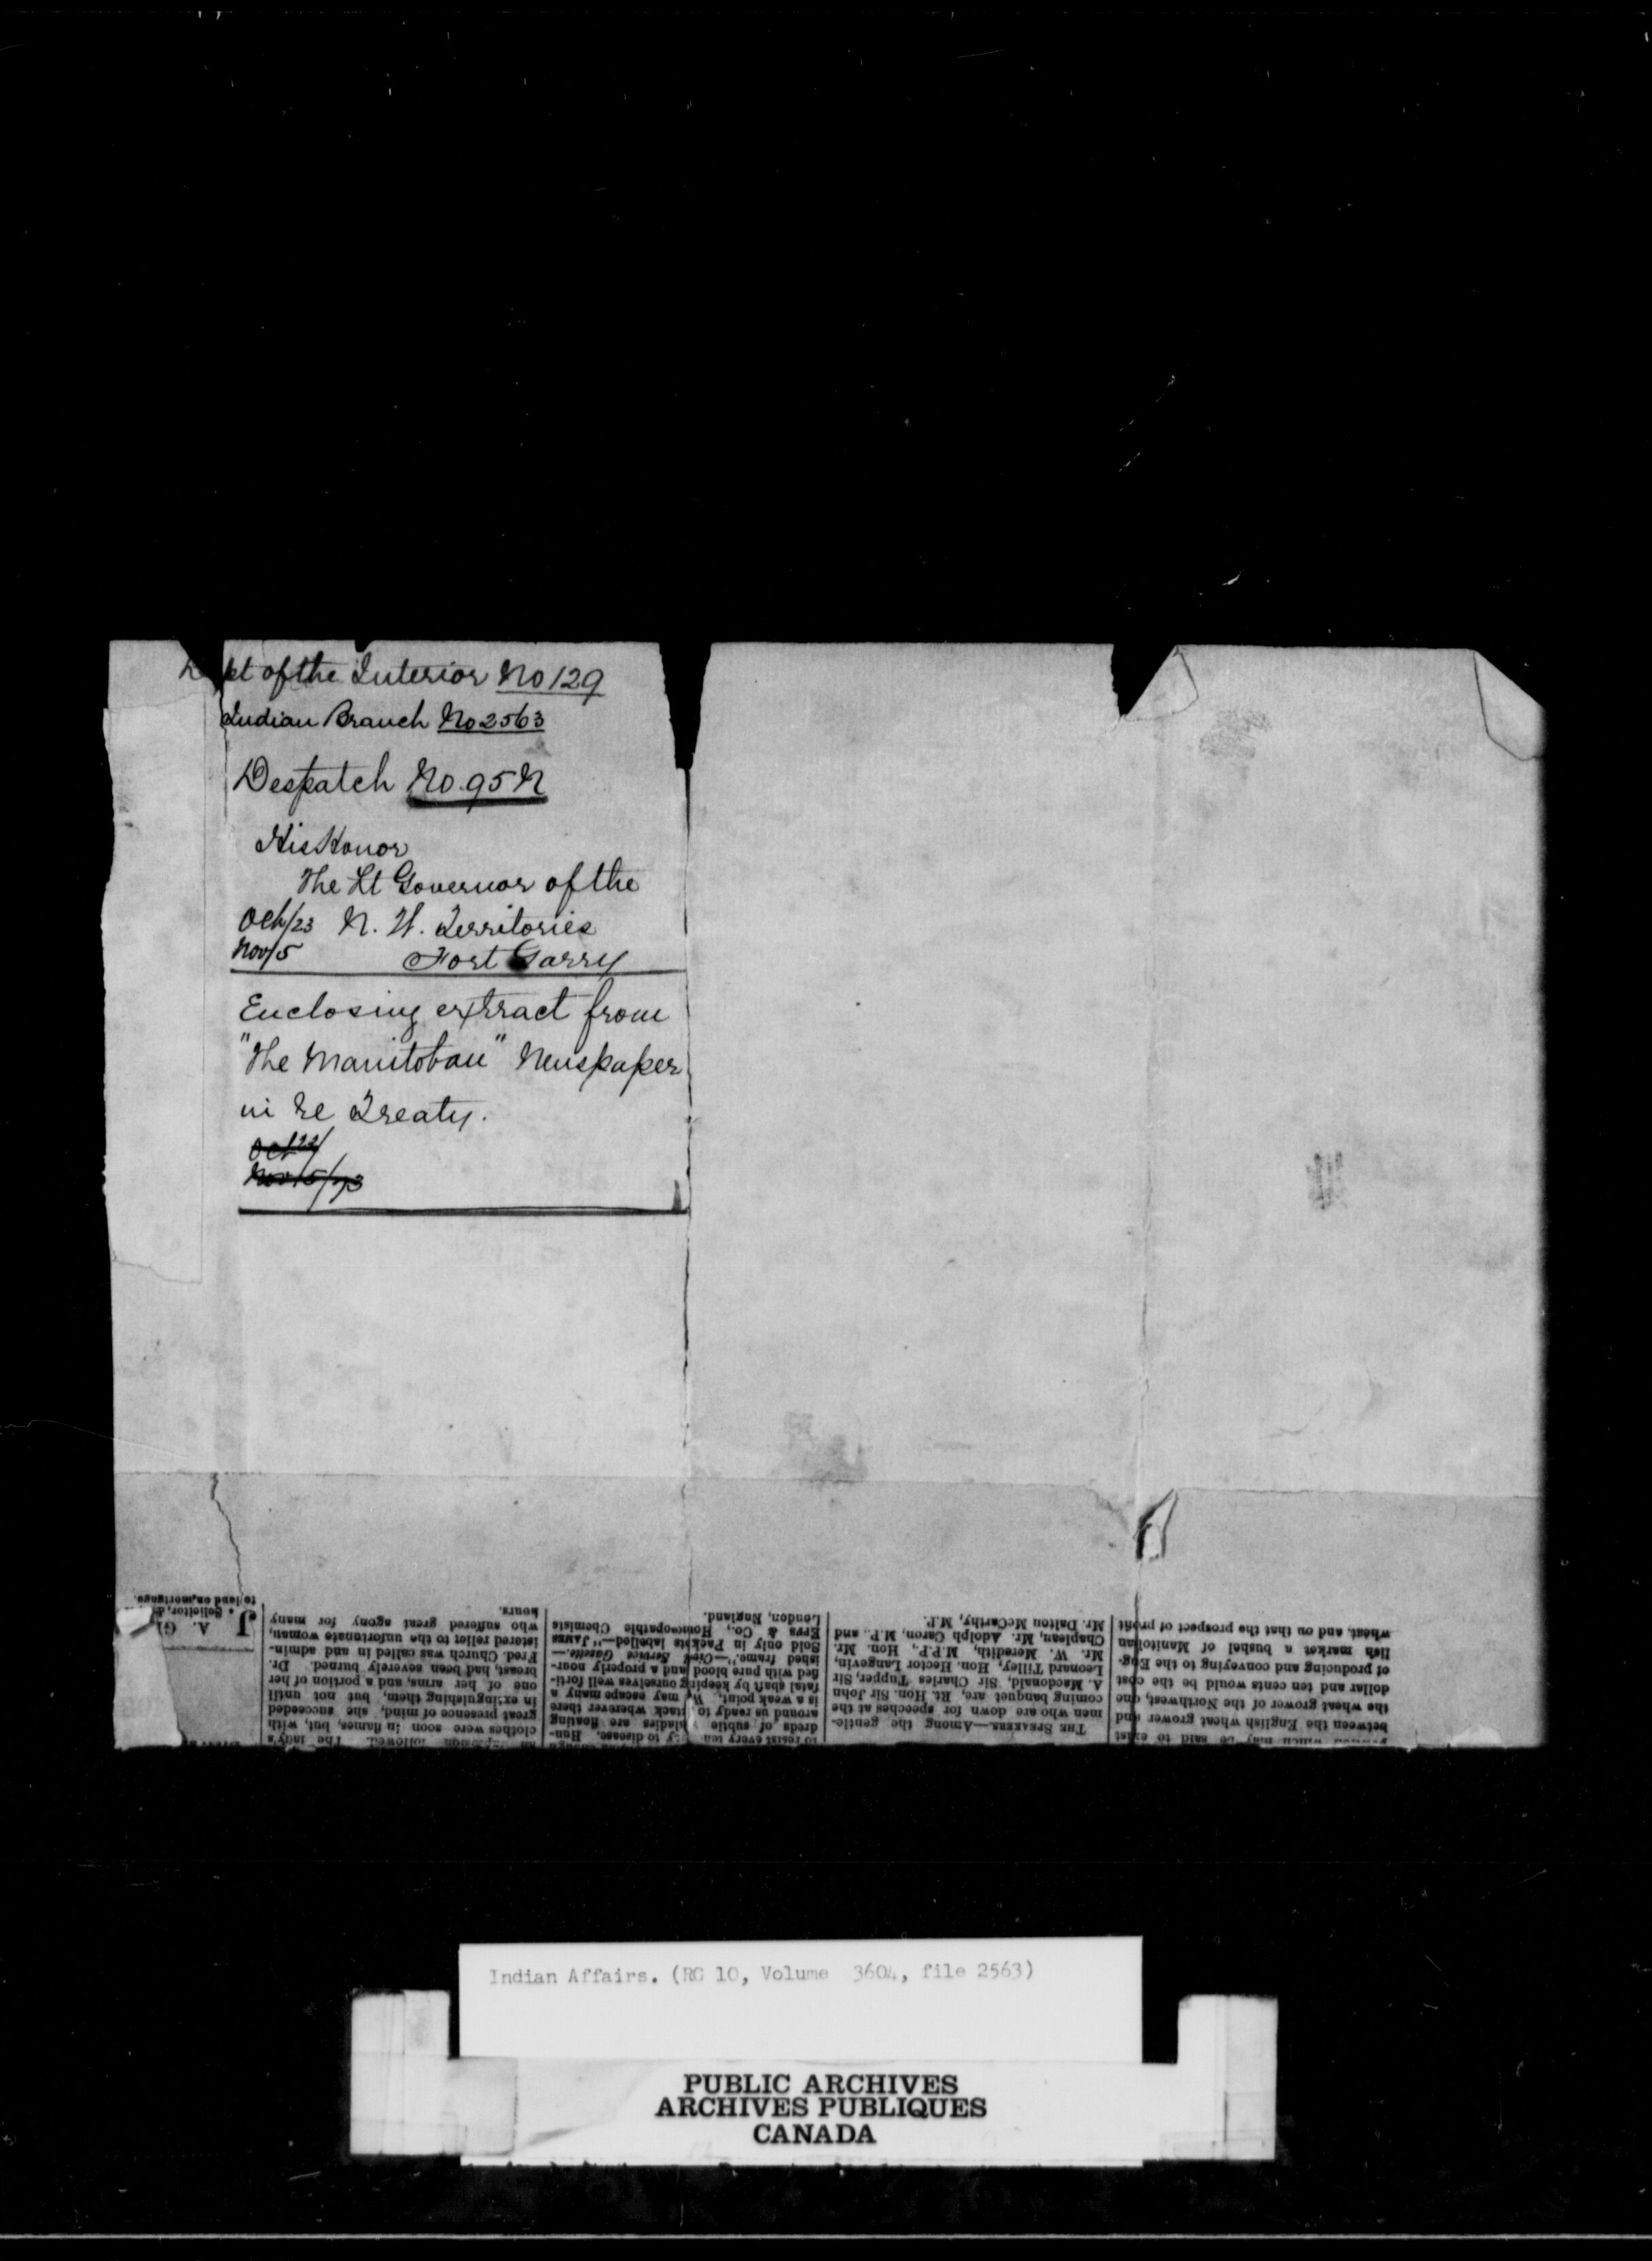 Dept of the Interior No 129
Indian Branch No 2563
Despatch No. 95 N
His Honor
The Lt Governor of the
Oct/23 N. W. Territories
Nov/5 Fort Garry
Enclosing extract from
"The Manitoban" Newspaper
in re Treaty.
Oct 23/
Nov 5/73
to lend on mortgage.
Solicitor, &
J. A. G
hours.
who suffered great agony for many
istered relief to the unfortunate woman,
Fred. Church was called in and admin-
breast, had been severely burned. Dr.
one of her arms, and a portion of her
in extinguishing them, but not until
great presence of mind, she succeeded
clothes were soon in flames, but, with
followed. The lady's
London, England.
Epps & Co., Homœopathic Chemists
Sold only in Packets labelled—"James
ished frame."—Civil Service Gazette.—
fied with pure blood and a properly nour-
fatal shaft by keeping ourselves well forti-
is a weak point. We may escape many a
around us ready to attack wherever there
dreds of subtle maladies are floating
to resist every ten to disease. Hun-
Mr. Dalton McCarthy, M.P.
Chapleau, Mr. Adolph Caron, M.P., and
Mr. W. Meredith, M.P.P., Hon. Mr.
Leonard Tilley, Hon. Hector Langevin,
A. Macdonald, Sir Charles Tupper, Sir
coming banquet are, Rt. Hon. Sir John
men who are down for speeches at the
The Speakers.—Among the gentle-
wheat, and on that the prospect of profit
lish market a bushel of Manitoban
of producing and conveying to the Eng-
dollar and ten cents would be the cost
the wheat grower of the Northwest, one
between the English wheat grower and
which may be said to exist
Indian Affairs. (RG 10, Volume 3604, file 2563)
PUBLIC ARCHIVES
ARCHIVES PUBLIQUES
CANADA